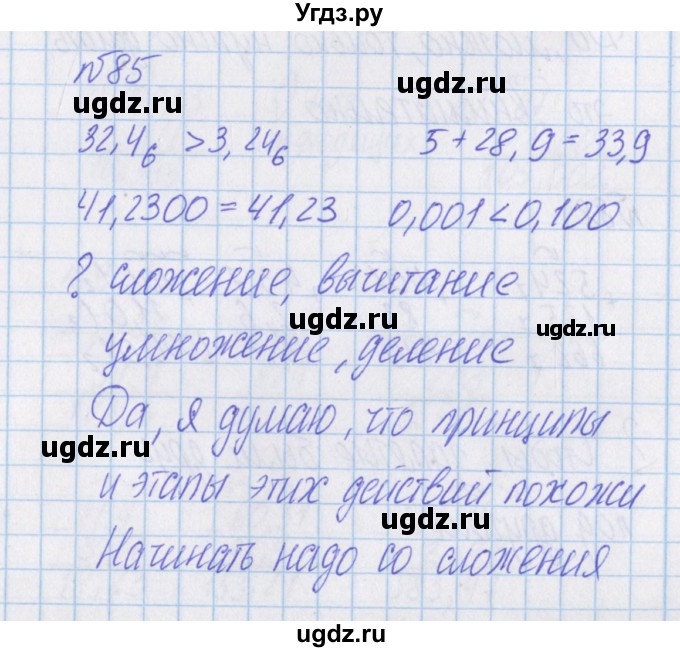 Угдз.ру
№85
ugdz.ru ugdz.ru
32,4₆ > 3,24₆ 5+28,9=33,9
41,2300=41,23 0,001<0,100
? сложение, вычитание
ugdz.ru ugdz.ru
умножение, деление
Да, я думаю, что принципы
ugdz.ru
и этапы этих действий похожи
ugdz.ru
Начинать надо со сложения
ugdz.ru